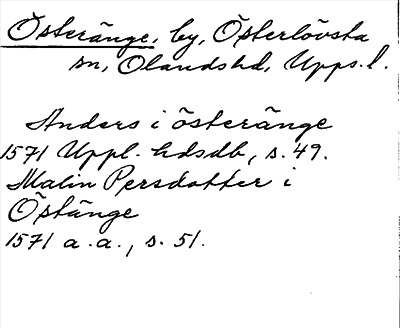 Österänge, by, Österlövsta
sn, Olandshd, Upps.l.
Anders i österänge
1571 Uppl. hdsdb, s. 49.
Malin Persdotter i
Östänge
1571 a.a., s. 51.